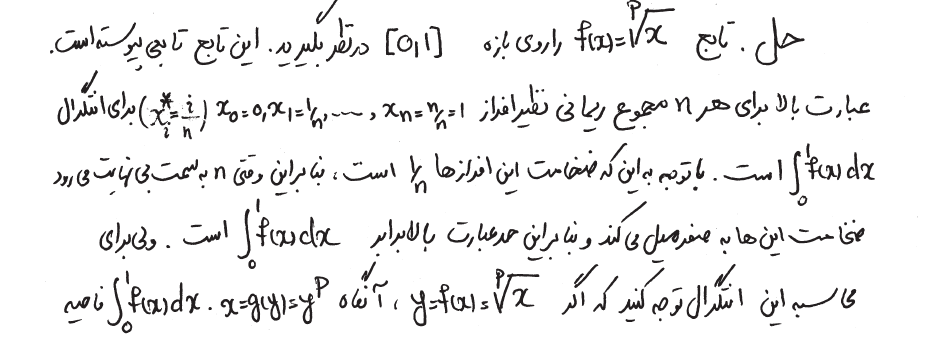 حل. تابع f(x)=ᵖ√x را روی بازه [0,1] در نظر بگیرید. این تابع تابعی پیوسته است.
عبارت بالا برای هر n مجموع ریمانی نظیر افراز x₀=0, x₁=1/n, ..., xₙ=n/n=1 (xᵢ*=i/n) برای انتگرال
∫₀¹ f(x) dx است. با توجه به این که ضخامت این افرازها 1/n است، بنابراین وقتی n به سمت بی نهایت می رود
ضخامت این ها به صفر میل می کند و بنابراین حد عبارت بالا برابر ∫₀¹ f(x) dx است. ولی برای
محاسبه این انتگرال توجه کنید که اگر y=f(x)=ᵖ√x ، آنگاه x=g(y)=yᵖ. ∫₀¹ f(x) dx ناحیه